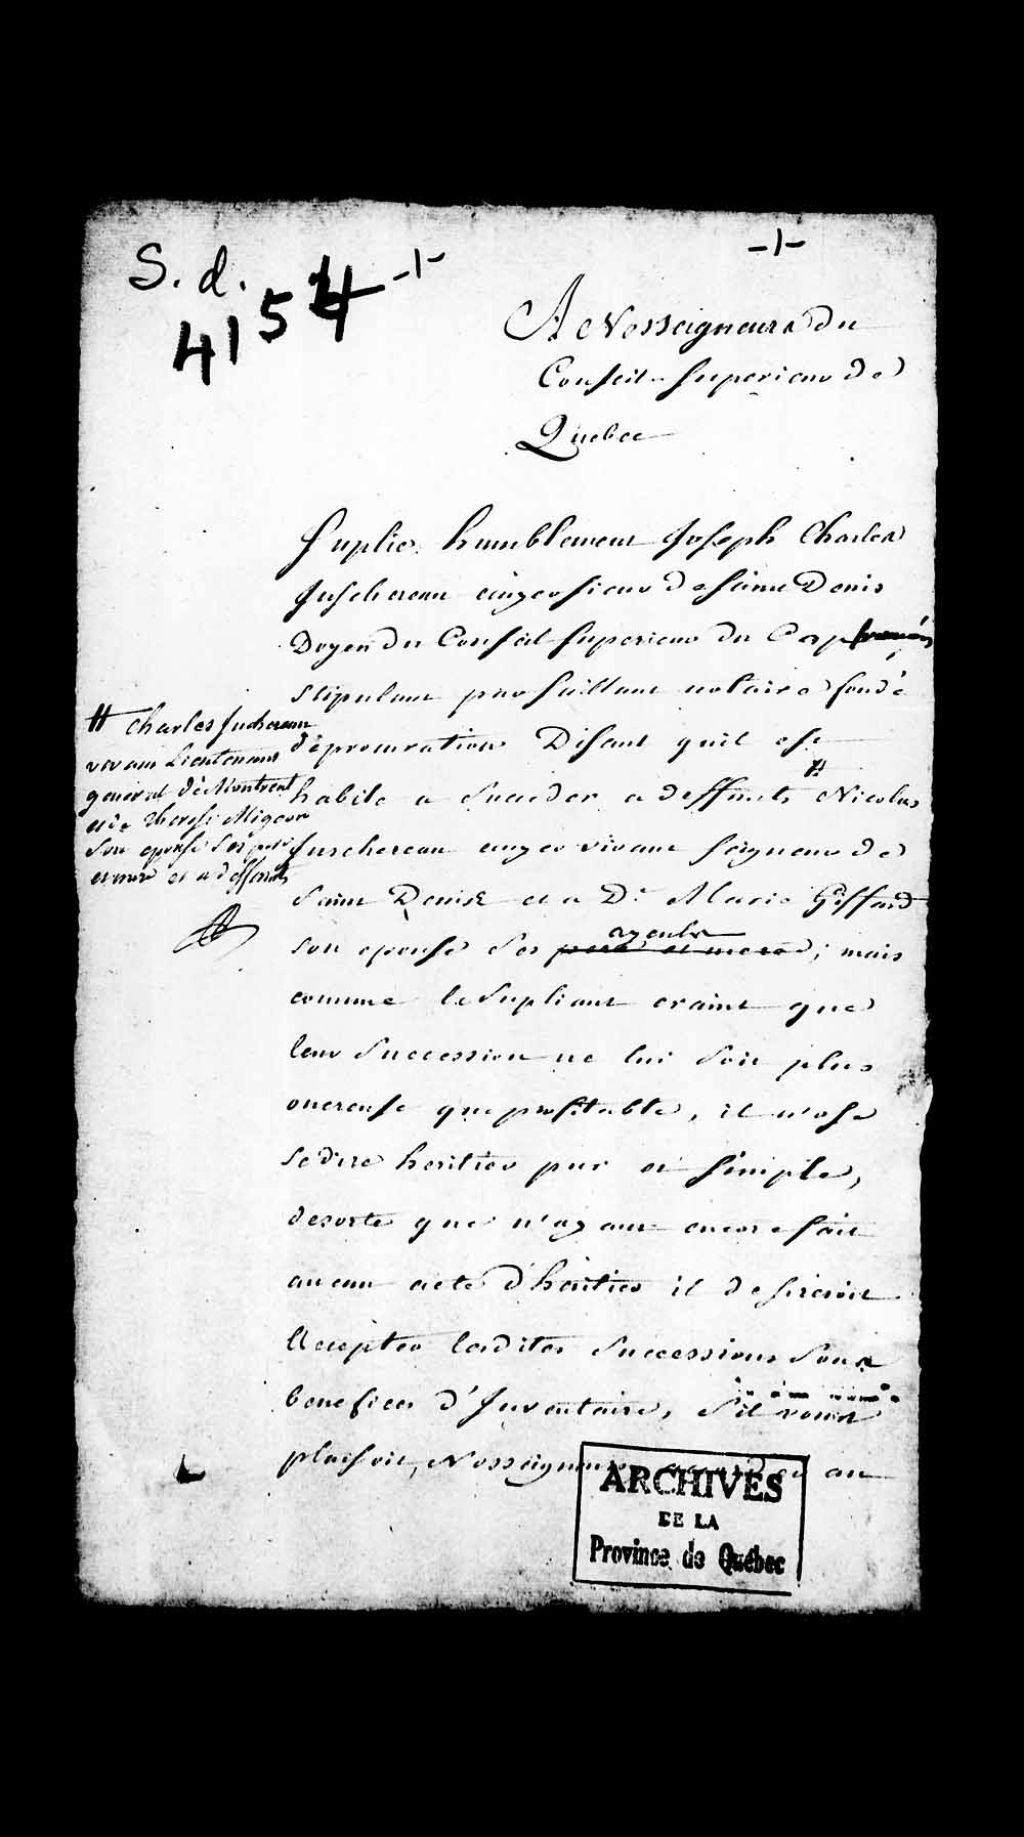 -1-
S. d.
4154 -1-
A Nosseigneurs du
Conseil Superieur de
Quebec
Suplie humblement Joseph Charles
Juschereau ecuyer sieur de Saint Denis
Doyen du Conseil Superieur du Cap francois
stipulant par Saillant notaire fondé
de procuration Disant quil est
habile a succeder a deffunts # Nicolas
Juschereau ecuyer vivant seigneur de
Saint Denis et a De Marie Giffard
ayeuls
son epouse ses pere et mere; mais
comme le Supliant craint que
leur Succession ne lui soit plus
onereuse que profitable, il n'ose
se dire heritier pur et simple,
desorte que n'ayant encore fait
aucun acte d'heritier il desireroit
accepter lesdites Successions sous
benefices d'Inventaire, s'il vous
plaisoit, Nosseigneurs au
# Charles Juchereau
vivant Lieutenant
general de Montreal
et de Therese Migeon
son epouse ses pere
et mere et a deffunts
ARCHIVES
DE LA
Province de Québec